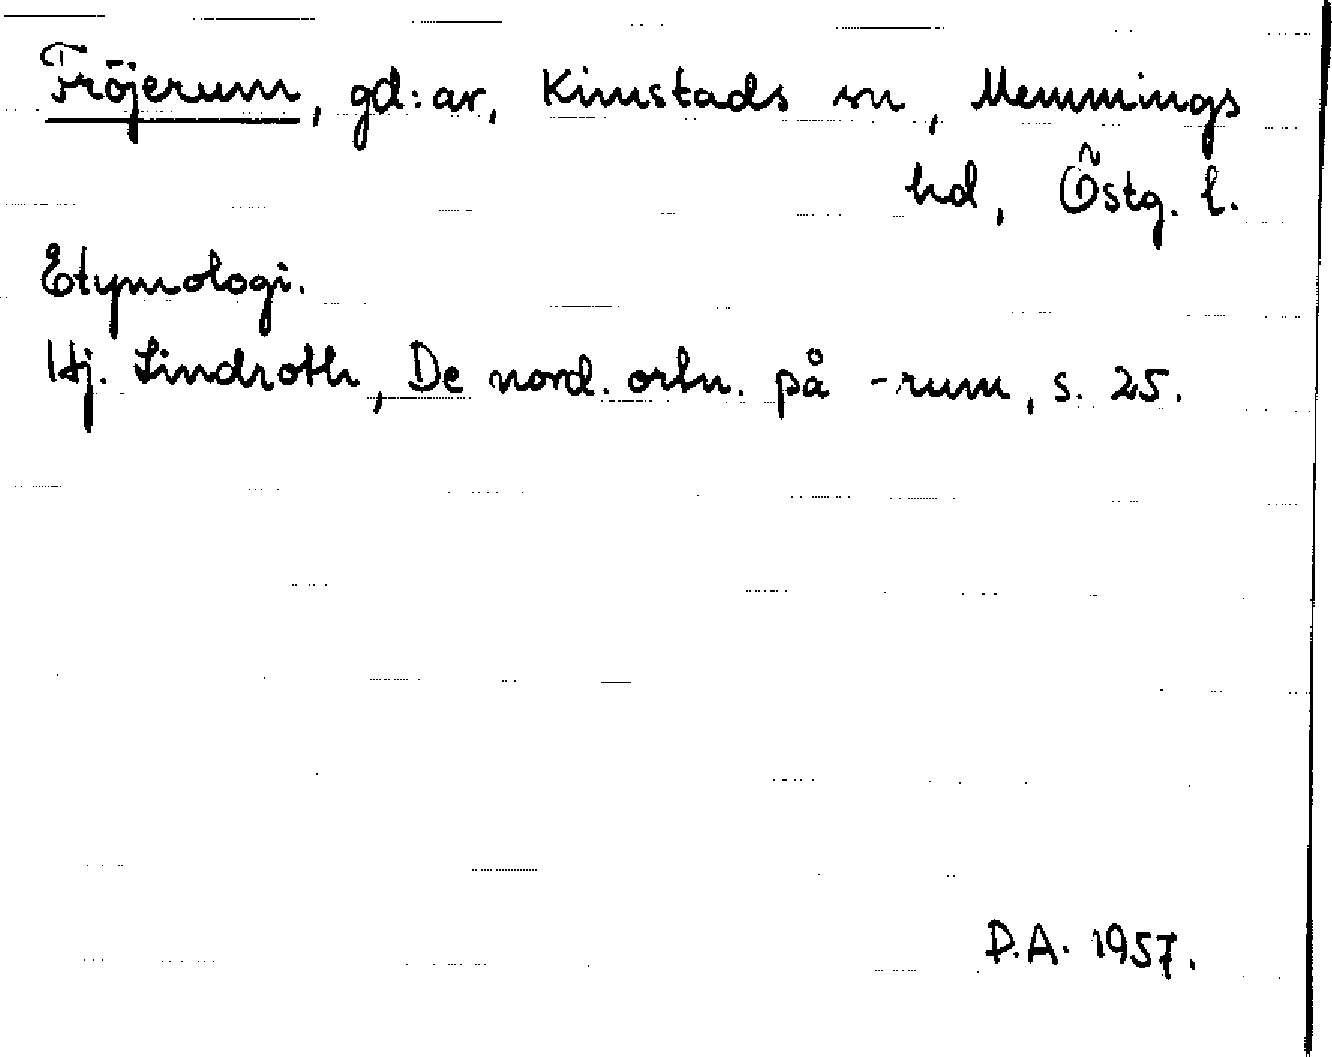 Fröjerum, gd:ar, Kimstads sn, Memmings
hd, Östg. l.
Etymologi.
Hj. Lindroth, De nord. ortn. på -rum, s. 25.
D.A. 1957.